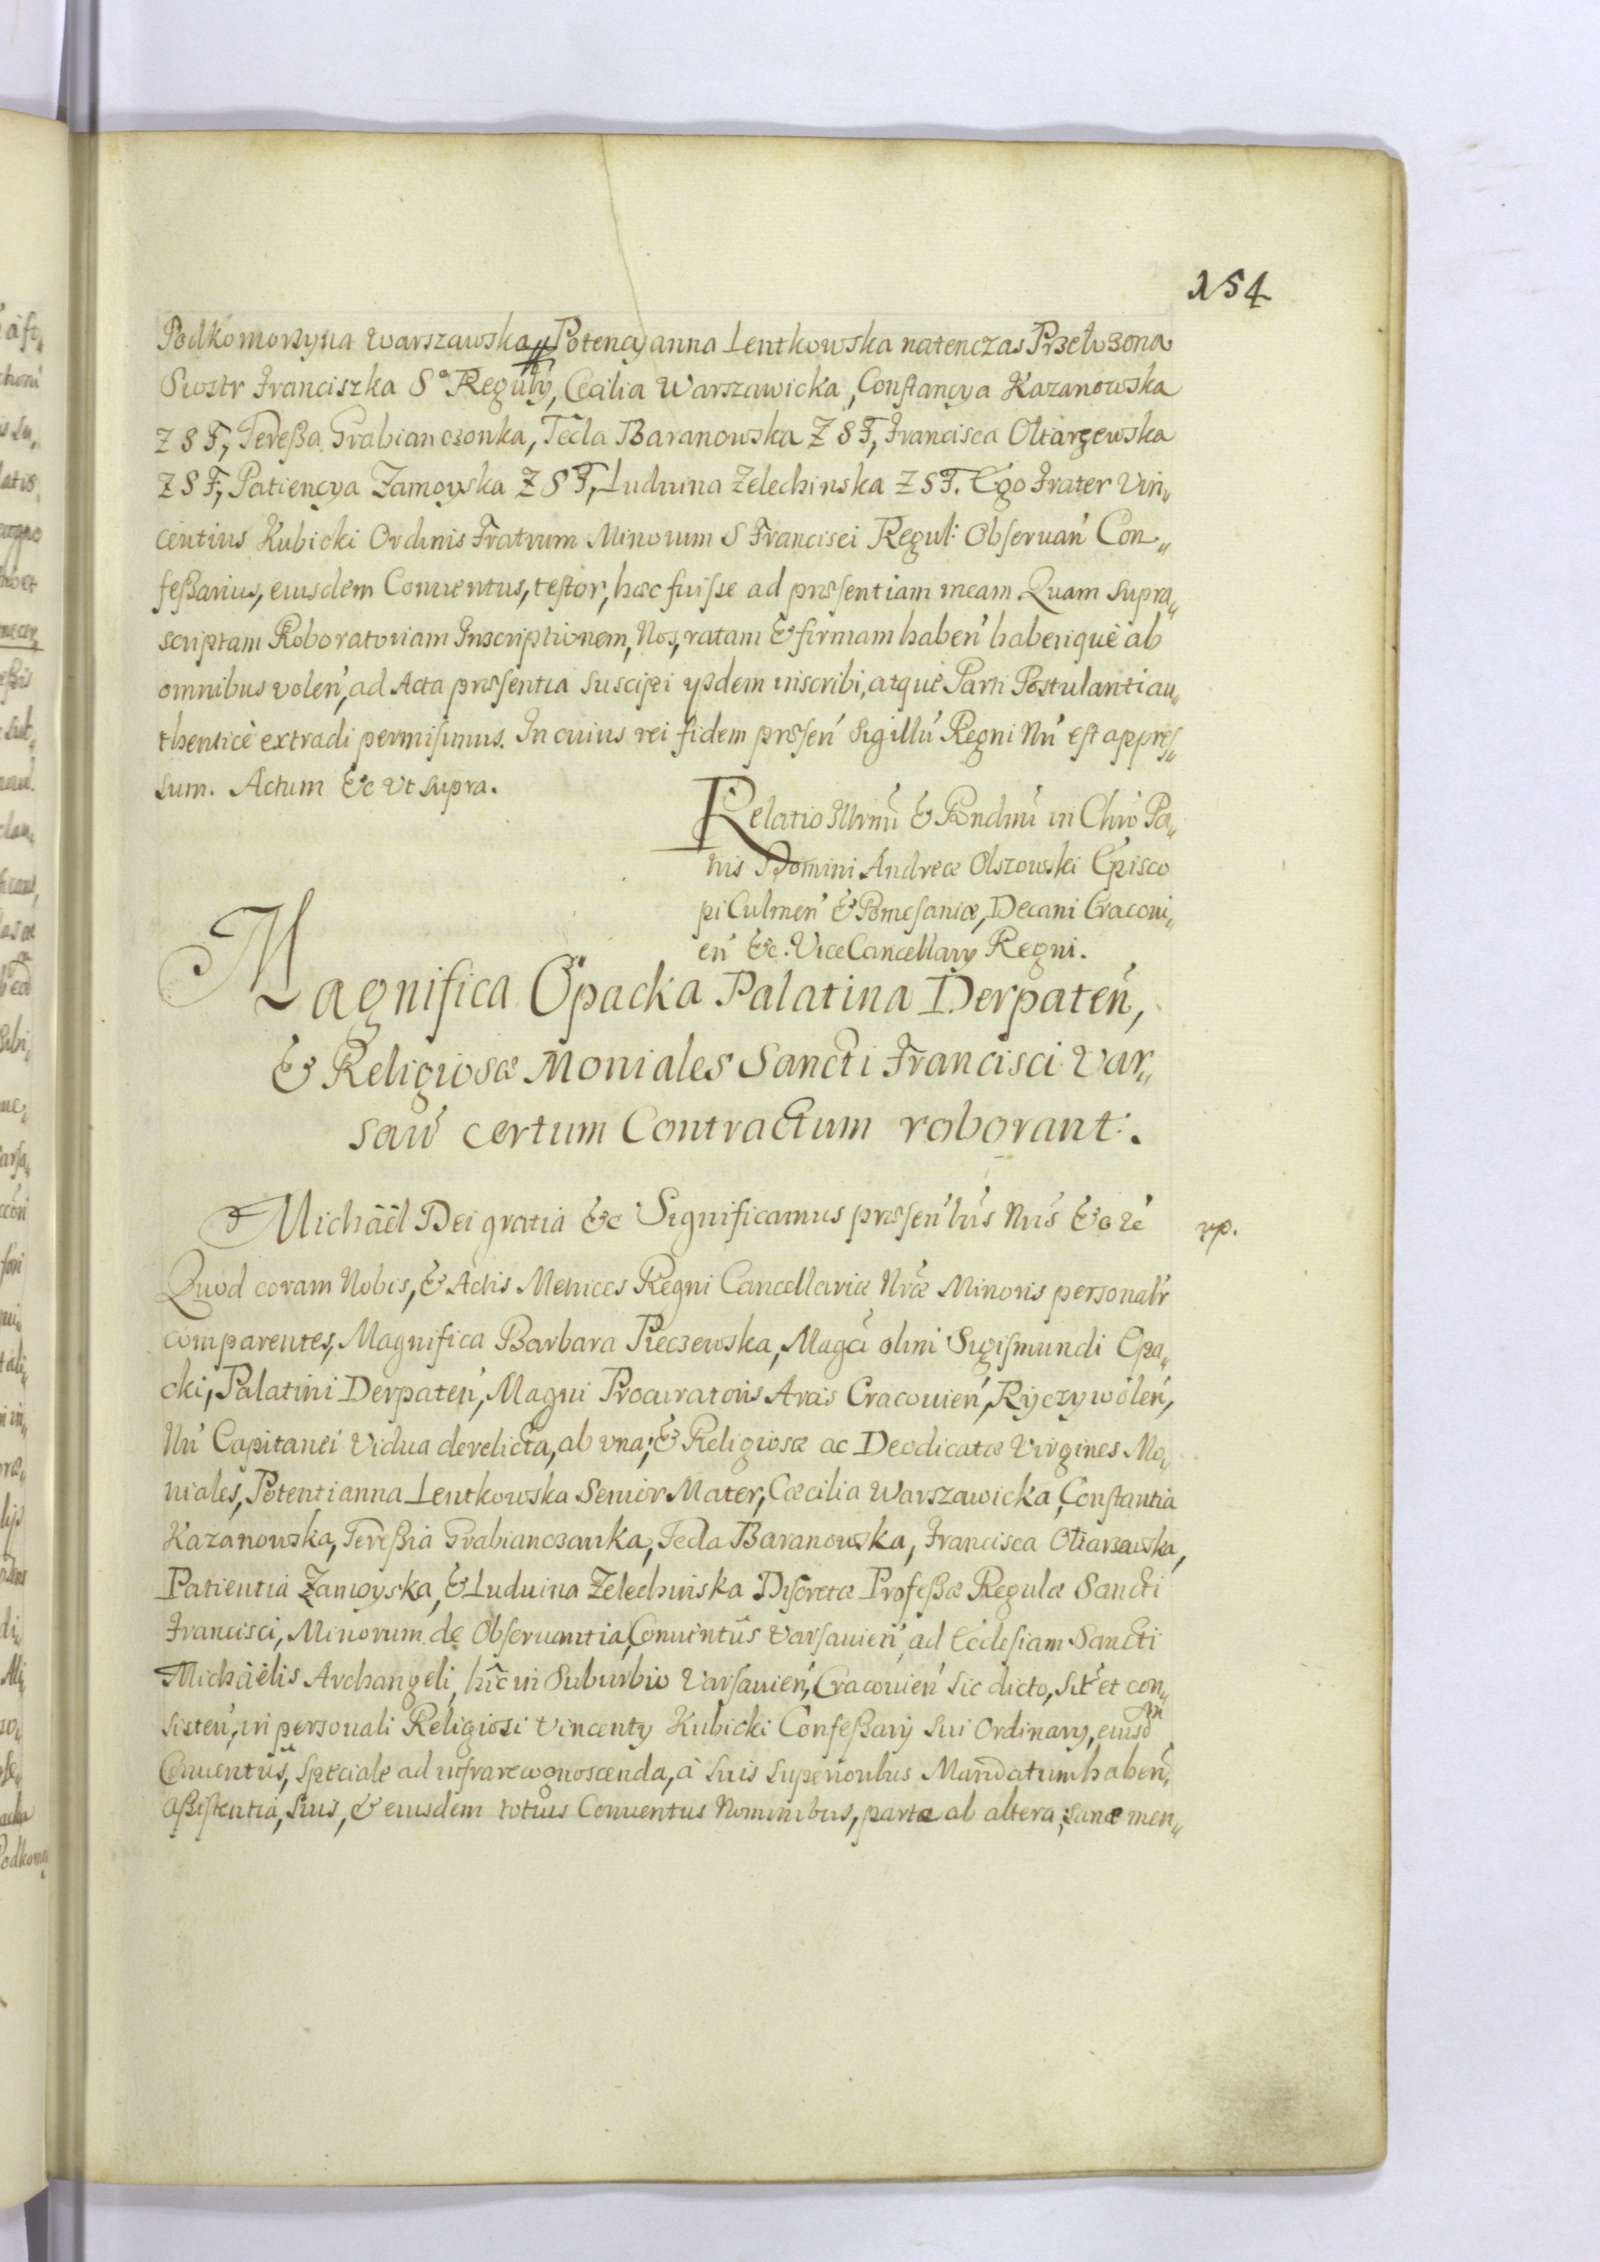 154
Podkomorzyna Warszawska, Potencyanna Lentkowska natenczas Przełozona
Siostr Franciszka Sº Reguły, Cecilia Warszawicka, Constancya Kazanowska
Z S F, Tereßa Grabianczonka, Tecla Baranowska Z S F, Francisca Oltarzewska
Z S F, Patiencya Zamoyska Z S F, Luduina Zelechinska Z S F. Ego Frater Vin„
centius Kubicki Ordinis Fratrum Minorum S Francisci Regul: Obseruan̄ Con„
feßarius, eiusdem Conuentus, testor, hæc fuisse ad præsentiam meam Quam supra„
scriptam Roboratoriam Inscriptionem, Nos, ratam & firmam haben̄ haberiquè ab
omnibus volen̄, ad Acta præsentia suscipi ijsdem inscribi, atquè Parti Postulanti au„
thenticè extradi permisimus. In cuius rei fidem præsen̄ Sigillū Regni Nr̄i est appres„
sum. Actum &c Vt supra.
Relatio Illrm̄i & Rendm̄i in Chrō Pa„
tris Domini Andreæ Olszowski Episco
pi Culmen̄ & Pomesaniæ, Decani Cracoui„
en̄ &c. ViceCancellary Regni.
Magnifica Opacka Palatina Derpaten̄,
& Religiosæ Moniales Sancti Francisci Var„
sau̅ certum Contractum roborant.
Michäel Dei gratiâ &c Significamus præsen̄ lūs Nr̄is &c rē
zp.
Quod coram Nobis, & Actis Metrices Regni Cancellariæ Nr̄æ Minoris personalr̄
comparentes, Magnifica Barbara Reczewska, Magci olim Sigismundi Opa„
cki, Palatini Derpaten̄, Magni Procuratoris Arcis Cracouien̄, Ryczywolen̄,
Nr̄i Capitanei Vidua derelicta, ab vna; & Religiosæ ac Deodicatæ Virgines Mo„
niales, Potentianna Lentkowska Senior Mater, Cæcilia Warszawicka, Constantia
Kazanowska, Tereßia Grabianczanka, Tecla Baranowska, Francisca Oltarzewska,
Patientia Zamoyska, & Luduina Zelechinska Discretæ Profeßæ Regulæ Sancti
Francisci, Minorum de Obseruantia, Conuentûs Varsauien̄, ad Ecclesiam Sancti
Michäelis Archangeli, hîc in Suburbio Varsauien̄, Cracouien̄ sic dicto, sit̄ et con„
sisten̄, in personali Religiosi Vincenty Kubicki Confeßarij Sui Ordinary, eiusdm
Conuentûs, speciale ad infra recognoscenda, à suis superioribus Mandatum haben̄,
aßistentiâ, suis, & eiusdem totius Conuentus Nominibus, parte ab altera, sanæ men„